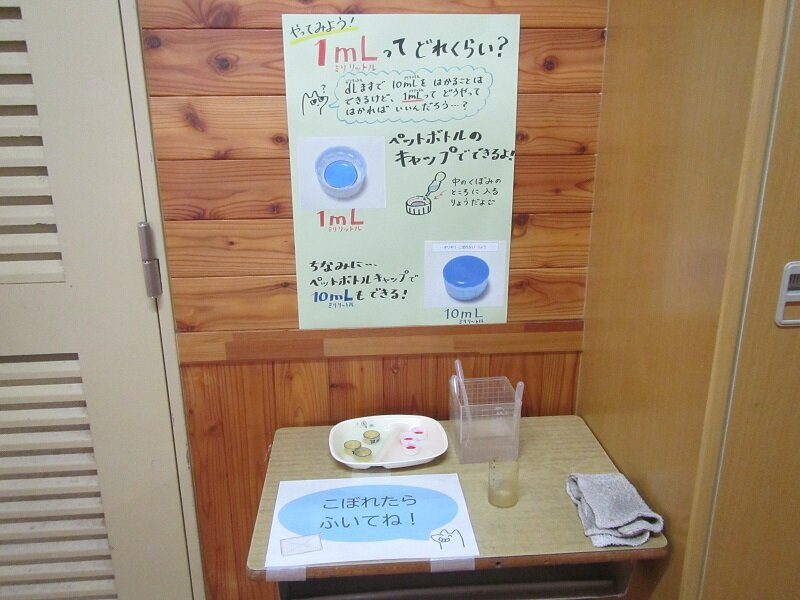 やってみよう!
1mLってどれくらい?
ミリリットル
dLますで 10mLを はかることは
できるけど、1mLって どうやって
はかれば いいんだろう…?
ペットボトルの
キャップでできるよ!
中のくぼみの
ところに入る
りょうだよ
1mL
ミリリットル
ちなみに…
ペットボトルキャップで
10mLもできる!
ミリリットル
10mL
ミリリットル
こぼれたら
ふいてね!